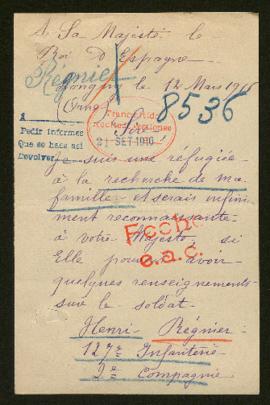 A Sa Majesté le
Roi d'Espagne
Régnier
le 12 Mars 1916
(Orne)
8536
Sire
21 SET. 1916
Pedir informes
Que se haga así
Devolver
Je suis une réfugiée
à la recherche de ma
famille et serais infini
ment reconnaissante
à votre Majesté, si
Elle pouvait avoir
quelques renseignements
sur le soldat
Henri Régnier
127e Infanterie
2e Compagnie